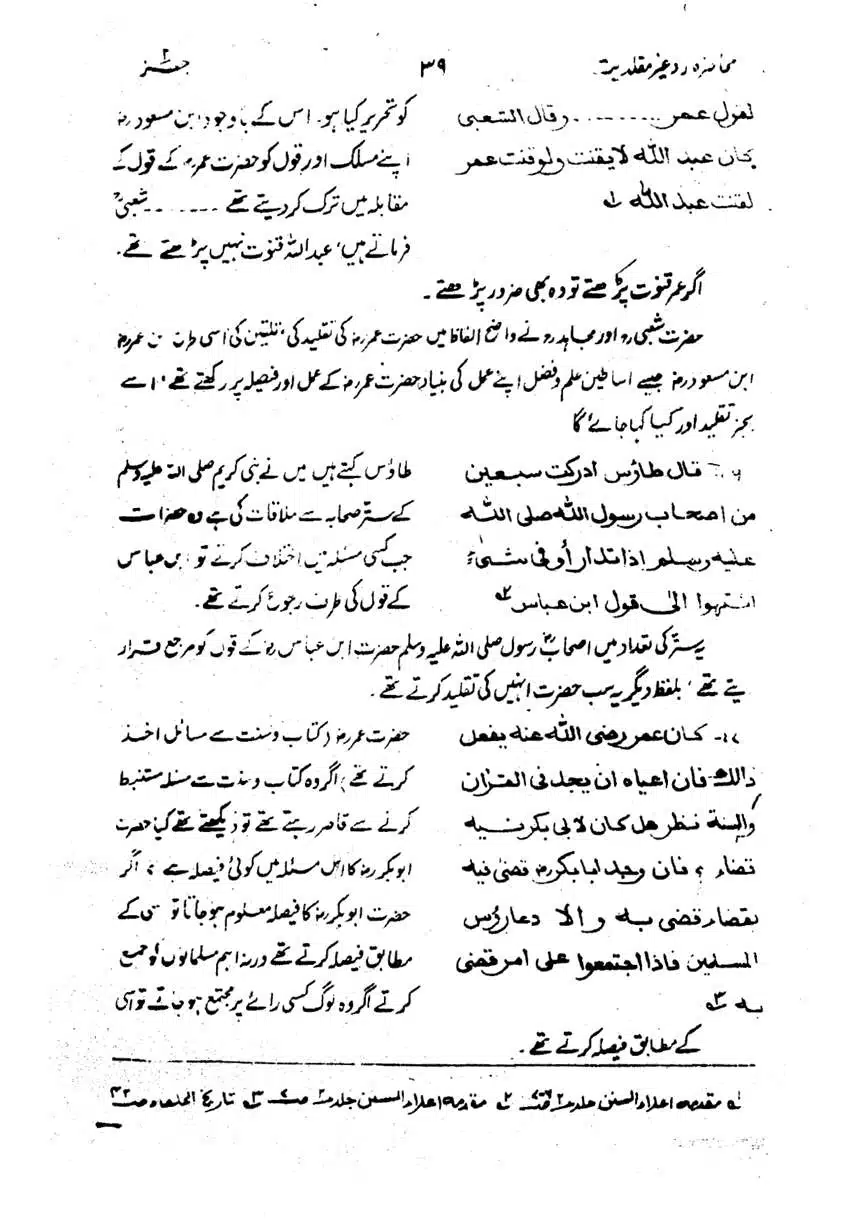 محاضرہ رد غیر مقلدیت ۳۹ جز ۲
لقول عمر ......... وقال الشعبی
کان عبد الله لا یقنت ولو قنت عمر
لقنت عبد الله
کو تحریر کیا ہو۔ اس کے باوجود ابن مسعود رض
اپنے مسلک اور قول کو حضرت عمر رض کے قول کے
مقابلہ میں ترک کر دیتے تھے ....... شعبیؒ
فرماتے ہیں، عبد اللہ قنوت نہیں پڑھتے تھے۔
اگر عمر قنوت پڑھتے تو وہ بھی ضرور پڑھتے۔
حضرت شعبی رح اور مجاہد رح نے واضح الفاظ میں حضرت عمر رض کی تقلید کی تلقین کی اسی طرح ابن عمر رض
ابن مسعود رض جیسے اساطین علم و فضل اپنے عمل کی بنیاد حضرت عمر رض کے عمل اور فیصلہ پر رکھتے تھے، اسے
بجز تقلید اور کیا کہا جائے گا
قال طاؤس ادرکت سبعین
من اصحاب رسول الله صلی الله
علیه وسلم اذا تدارأو فی شیء
انتهوا الی قول ابن عباس ۲
طاؤس کہتے ہیں میں نے نبی کریم صلی اللہ علیہ وسلم
کے ستر صحابہ سے ملاقات کی ہے وہ حضرات
جب کسی مسئلہ میں اختلاف کرتے تو ابن عباس
کے قول کی طرف رجوع کرتے تھے۔
یہ ستر کی تعداد میں اصحاب رسول صلی اللہ علیہ وسلم حضرت ابن عباس رض کے قول کو مرجع قرار
دیتے تھے، بلفظ دیگر یہ سب حضرت انہیں کی تقلید کرتے تھے۔
۱۷- کان عمر رضی الله عنه یفعل
ذالك فان اعیاه ان یجد فی القرآن
والسنة نظر هل کان لابی بکر فیه
قضاء ؟ فان وجد ابا بکر رض قضی فیه
بقضاء قضی به والا دعا رؤس
المسلمین فاذا اجتمعوا علی امر قضی
به ۳
حضرت عمر رض (کتاب و سنت سے مسائل اخذ
کرتے تھے) اگر وہ کتاب و سنت سے مسئلہ مستنبط
کرنے سے قاصر رہتے تھے تو دیکھتے تھے کیا حضرت
ابو بکر رض کا اس مسئلہ میں کوئی فیصلہ ہے ؟ اگر
حضرت ابو بکر رض کا فیصلہ معلوم ہو جاتا تو اسی کے
مطابق فیصلہ کرتے تھے ورنہ اہم مسلمانوں کو جمع
کرتے اگر وہ لوگ کسی رائے پر مجتمع ہو جاتے تو اسی
کے مطابق فیصلہ کرتے تھے۔
۱ مقدمہ اعلاء السنن جلد ۲ ۲ مقدمہ اعلاء السنن جلد ۲ ۳ تاریخ الخلفاء ص ۴۲